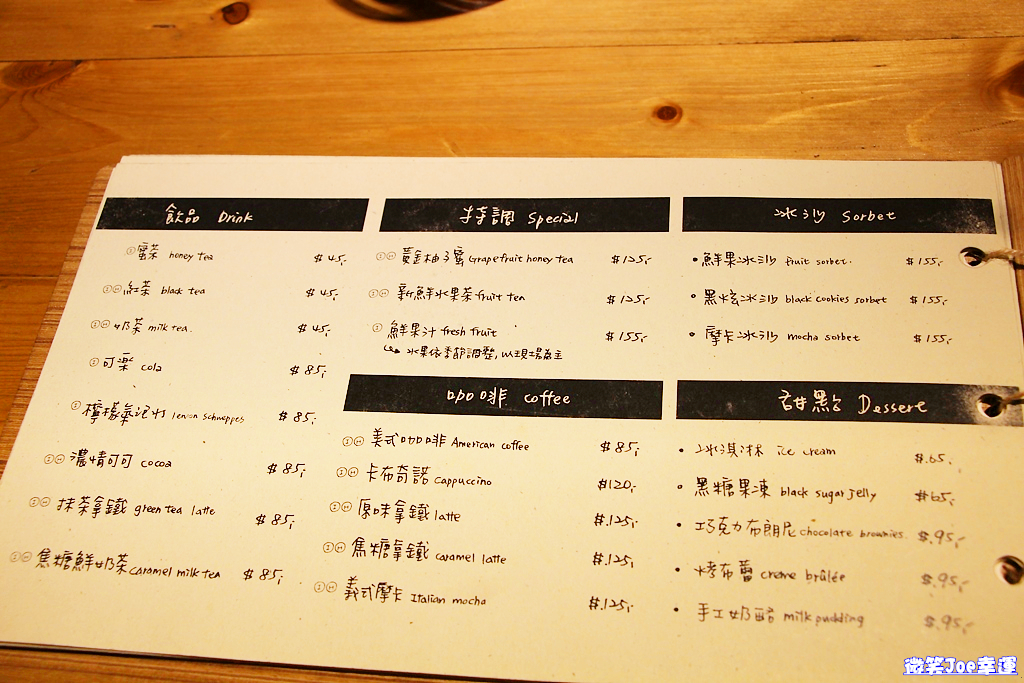 飲品 Drink
蜜茶 honey tea $45,-
紅茶 black tea $45,-
奶茶 milk tea. $45,-
可樂 cola $85,-
檸檬氣泡水 lemon schweppes $85,-
濃情可可 cocoa $85,-
抹茶拿鐵 green tea latte $85,-
焦糖鮮奶茶 caramel milk tea $85,-
特調 Special
黃金柚子蜜 Grapefruit honey tea $125,-
新鮮水果茶 fruit tea $125,-
鮮果汁 fresh fruit $155,-
水果依季節調整,以現場為主
咖啡 coffee
美式咖啡 American coffee $85,-
卡布奇諾 Cappuccino $120,-
原味拿鐵 latte $125,-
焦糖拿鐵 caramel latte $125,-
義式摩卡 Italian mocha $125,-
冰沙 Sorbet
• 鮮果冰沙 fruit sorbet. $155,-
• 黑炫冰沙 black cookies sorbet $155,-
• 摩卡冰沙 mocha sorbet $155,-
甜點 Dessert
• 冰淇淋 ice cream $65,-
• 黑糖果凍 black sugar jelly $65,-
• 巧克力布朗尼 chocolate brownies. $95,-
• 烤布蕾 creme brûlée $95,-
• 手工奶酪 milk pudding $95,-
微笑Joe幸運